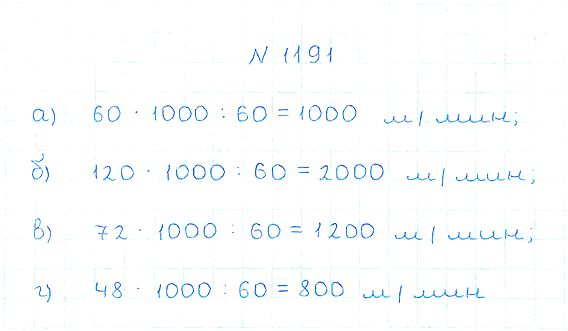 N 1191
а) 60 · 1000 : 60 = 1000 м/мин;
б) 120 · 1000 : 60 = 2000 м/мин;
в) 72 · 1000 : 60 = 1200 м/мин;
г) 48 · 1000 : 60 = 800 м/мин